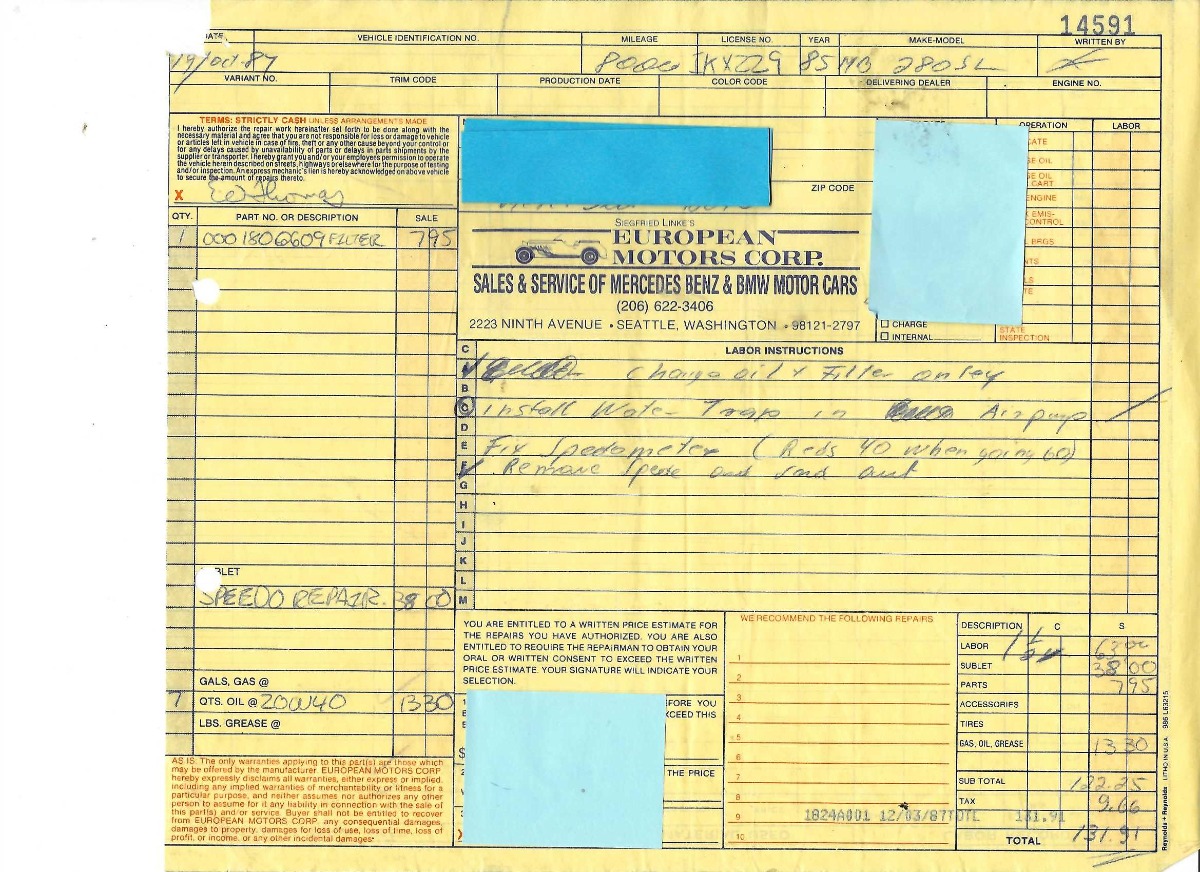 14591
DATE VEHICLE IDENTIFICATION NO. MILEAGE LICENSE NO. YEAR MAKE-MODEL WRITTEN BY
19/Oct.87 8000 IKX229 85 MB 280SL
VARIANT NO. TRIM CODE PRODUCTION DATE COLOR CODE DELIVERING DEALER ENGINE NO.
TERMS: STRICTLY CASH UNLESS ARRANGEMENTS MADE
I hereby authorize the repair work hereinafter set forth to be done along with the
necessary material and agree that you are not responsible for loss or damage to vehicle
or articles left in vehicle in case of fire, theft or any other cause beyond your control or
for any delays caused by unavailability of parts or delays in parts shipments by the
supplier or transporter. I hereby grant you and/or your employees permission to operate
the vehicle herein described on streets, highways or elsewhere for the purpose of testing
and/or inspection. An express mechanic's lien is hereby acknowledged on above vehicle
to secure the amount of repairs thereto.
X EW Thomas
ZIP CODE
OPERATION LABOR
CATE
GE OIL
GE OIL
CART
ENGINE
EMIS-
CONTROL
BRGS
NTS
LS
TE
CHARGE
INTERNAL
STATE
INSPECTION
SIEGFRIED LINKE'S
EUROPEAN
MOTORS CORP.
SALES & SERVICE OF MERCEDES BENZ & BMW MOTOR CARS
(206) 622-3406
2223 NINTH AVENUE • SEATTLE, WASHINGTON • 98121-2797
QTY. PART NO. OR DESCRIPTION SALE
1 000 180 6609 FILTER 7 95
SUBLET
SPEEDO REPAIR. 38 00
GALS, GAS @
7 QTS. OIL @ 20W40 13 30
LBS. GREASE @
LABOR INSTRUCTIONS
C
A Change oil & Filter onley
B
C Install Water Trap in Airpump
D
E Fix Spedometer (Reds 40 when going 60)
F Remove Spedo and send out
G
H
I
J
K
L
M
YOU ARE ENTITLED TO A WRITTEN PRICE ESTIMATE FOR
THE REPAIRS YOU HAVE AUTHORIZED. YOU ARE ALSO
ENTITLED TO REQUIRE THE REPAIRMAN TO OBTAIN YOUR
ORAL OR WRITTEN CONSENT TO EXCEED THE WRITTEN
PRICE ESTIMATE. YOUR SIGNATURE WILL INDICATE YOUR
SELECTION.
EFORE YOU
XCEED THIS
THE PRICE
WE RECOMMEND THE FOLLOWING REPAIRS
1
2
3
4
5
6
7
8
9
10
1824A001 12/03/87TOTL 131.91
DESCRIPTION C S
LABOR 63 00
SUBLET 38 00
PARTS 7 95
ACCESSORIES
TIRES
GAS, OIL, GREASE 13 30
SUB TOTAL 122.25
TAX 9.66
TOTAL 131.91
AS IS: The only warranties applying to this part(s) are those which
may be offered by the manufacturer. EUROPEAN MOTORS CORP.
hereby expressly disclaims all warranties, either express or implied,
including any implied warranties of merchantability or fitness for a
particular purpose, and neither assumes nor authorizes any other
person to assume for it any liability in connection with the sale of
this part(s) and/or service. Buyer shall not be entitled to recover
from EUROPEAN MOTORS CORP. any consequential damages,
damages to property, damages for loss of use, loss of time, loss of
profit, or income, or any other incidental damages.
Reynolds + Reynolds LITHO IN U.S.A. 986 L63215